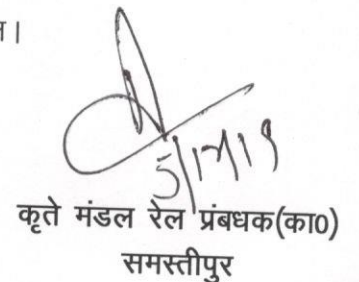 न।
कृते मंडल रेल प्रंबधक(का0)
समस्तीपुर